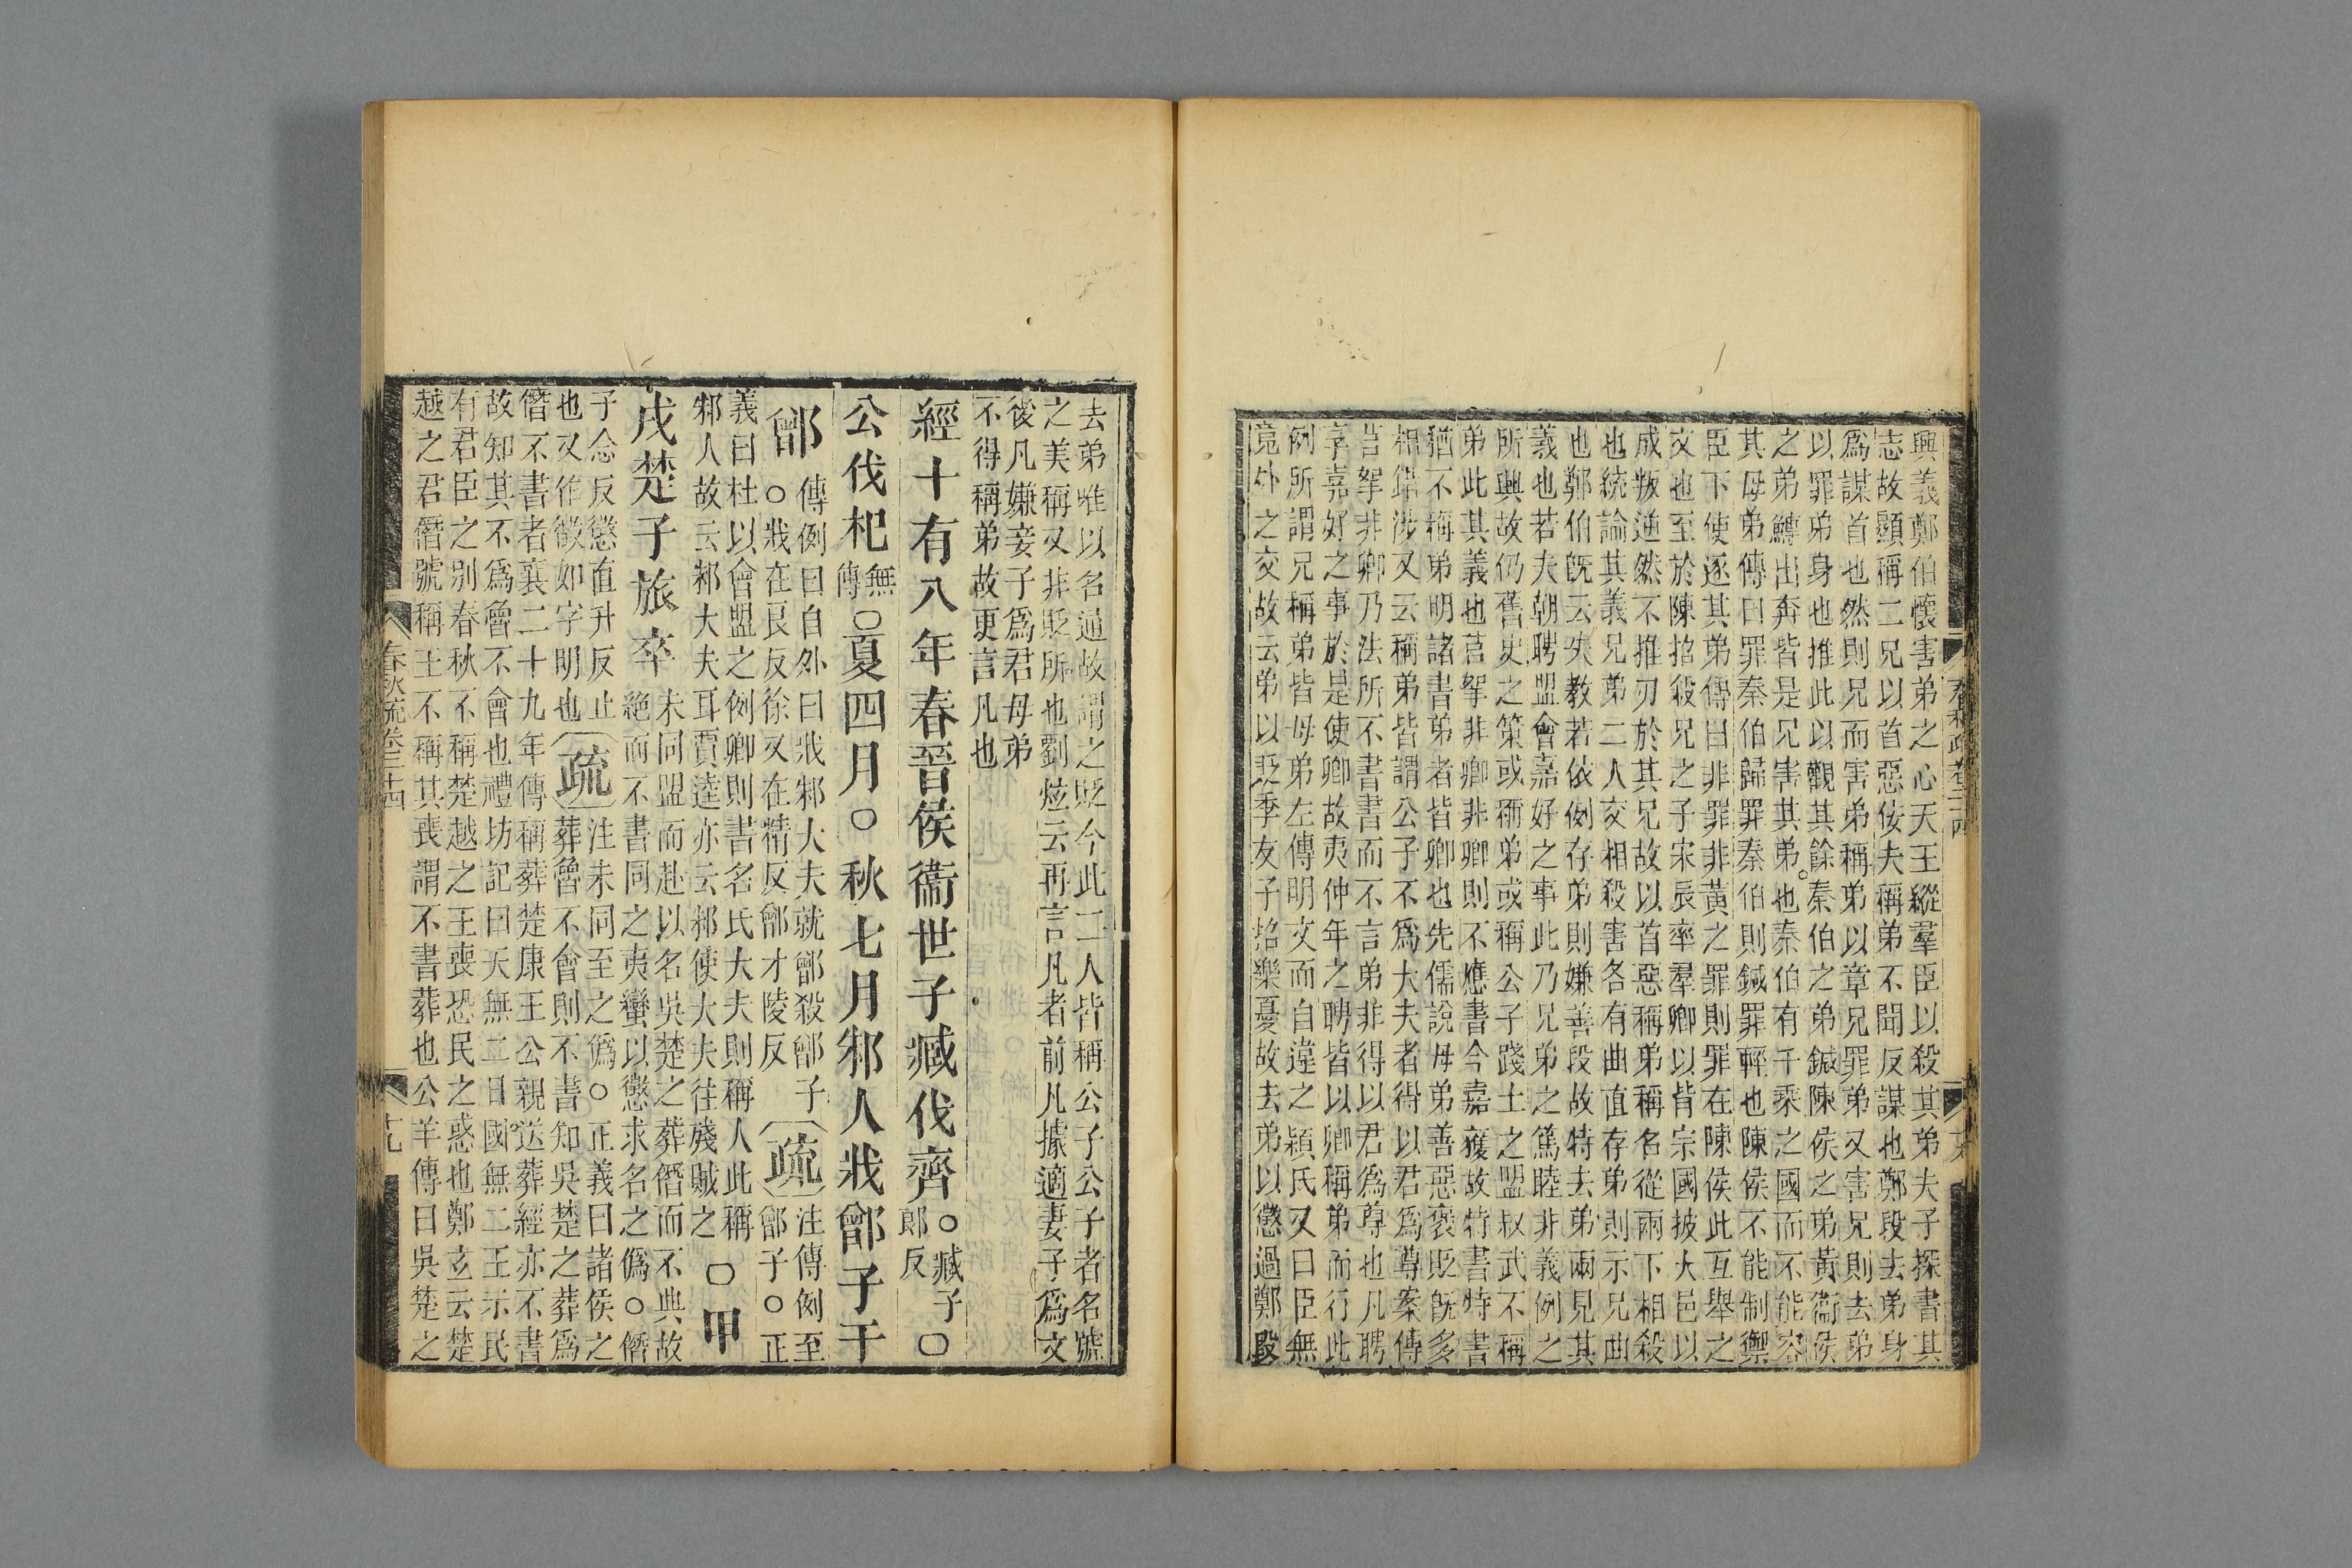 興義鄭伯懷害弟之心天王縱羣臣以殺其弟夫子探書其
志故顯稱二兄以首惡佞夫稱弟不聞反謀也鄭段去弟身
爲謀首也然則兄而害弟稱弟以章兄罪弟又害兄則去弟
以罪弟身也推此以觀其餘秦伯之弟鍼陳侯之弟黃衞侯
之弟鱄出奔皆是兄害其弟也秦伯有千乘之國而不能容
其母弟傳曰罪秦伯歸罪秦伯則鍼罪輕也陳侯不能制禦
臣下使逐其弟傳曰非罪非黃之罪則罪在陳侯此互舉之
文也至於陳招殺兄之子宋辰率羣卿以背宗國披大邑以
成叛逆然不推刃於其兄故以首惡稱弟稱名從兩下相殺
也統論其義兄弟二人交相殺害各有曲直存弟則示兄曲
也鄭伯旣云失教若依例存弟則嫌善段故特去弟兩見其
義也若夫朝聘盟會嘉好之事此乃兄弟之篤睦非義例之
所興故仍舊史之策或稱弟或稱公子踐土之盟叔武不稱
弟此其義也莒拏非卿非卿則不應書今嘉獲故特書特書
猶不稱弟明諸書弟者皆卿也先儒說母弟善惡褒貶旣多
相錯涉又云稱弟皆謂公子不爲大夫者得以君爲尊案傳
莒拏非卿乃法所不書書而不言弟非得以君爲尊也凡聘
享嘉好之事於是使卿故夷仲年之聘皆以卿稱弟而行此
例所謂兄稱弟皆母弟左傳明文而自違之潁氏又曰臣無
竟外之交故去弟以貶季友子招樂憂故去弟以懲過鄭段
春秋疏卷二十四
去弟唯以名通故謂之貶今此二人皆稱公子公子者名號
之美稱又非貶所也劉炫云再言凡者前凡據適妻子爲文
後凡嫌妾子爲君母弟
不得稱弟故更言凡也
經十有八年春晉侯衞世子臧伐齊○臧子郎反○
公伐杞無傳○夏四月○秋七月邾人戕鄫子于
鄫傳例曰自外曰戕邾大夫就鄫殺鄫子
○戕在良反徐又在精反鄫才陵反
疏注傳例至
鄫子○正
義曰杜以會盟之例卿則書名氏大夫則稱人此稱
邾人故云邾大夫耳賈逵亦云邾使大夫往殘賊之
○甲
戌楚子旅卒未同盟而赴以名吳楚之葬僭而不典故
絕而不書同之夷蠻以懲求名之僞○僭
子念反懲直升反止
也又作徵如字明也
疏注未同至之僞○正義曰諸侯之
葬魯不會則不書知吳楚之葬爲
僭不書者襄二十九年傳稱葬楚康王公親送葬經亦不書
故知其不爲魯不會也禮坊記曰天無二日國無二王示民
有君臣之別春秋不稱楚越之王喪恐民之惑也鄭玄云楚
越之君僭號稱王不稱其喪謂不書葬也公羊傳曰吳楚之
春秋疏卷二十四
十九